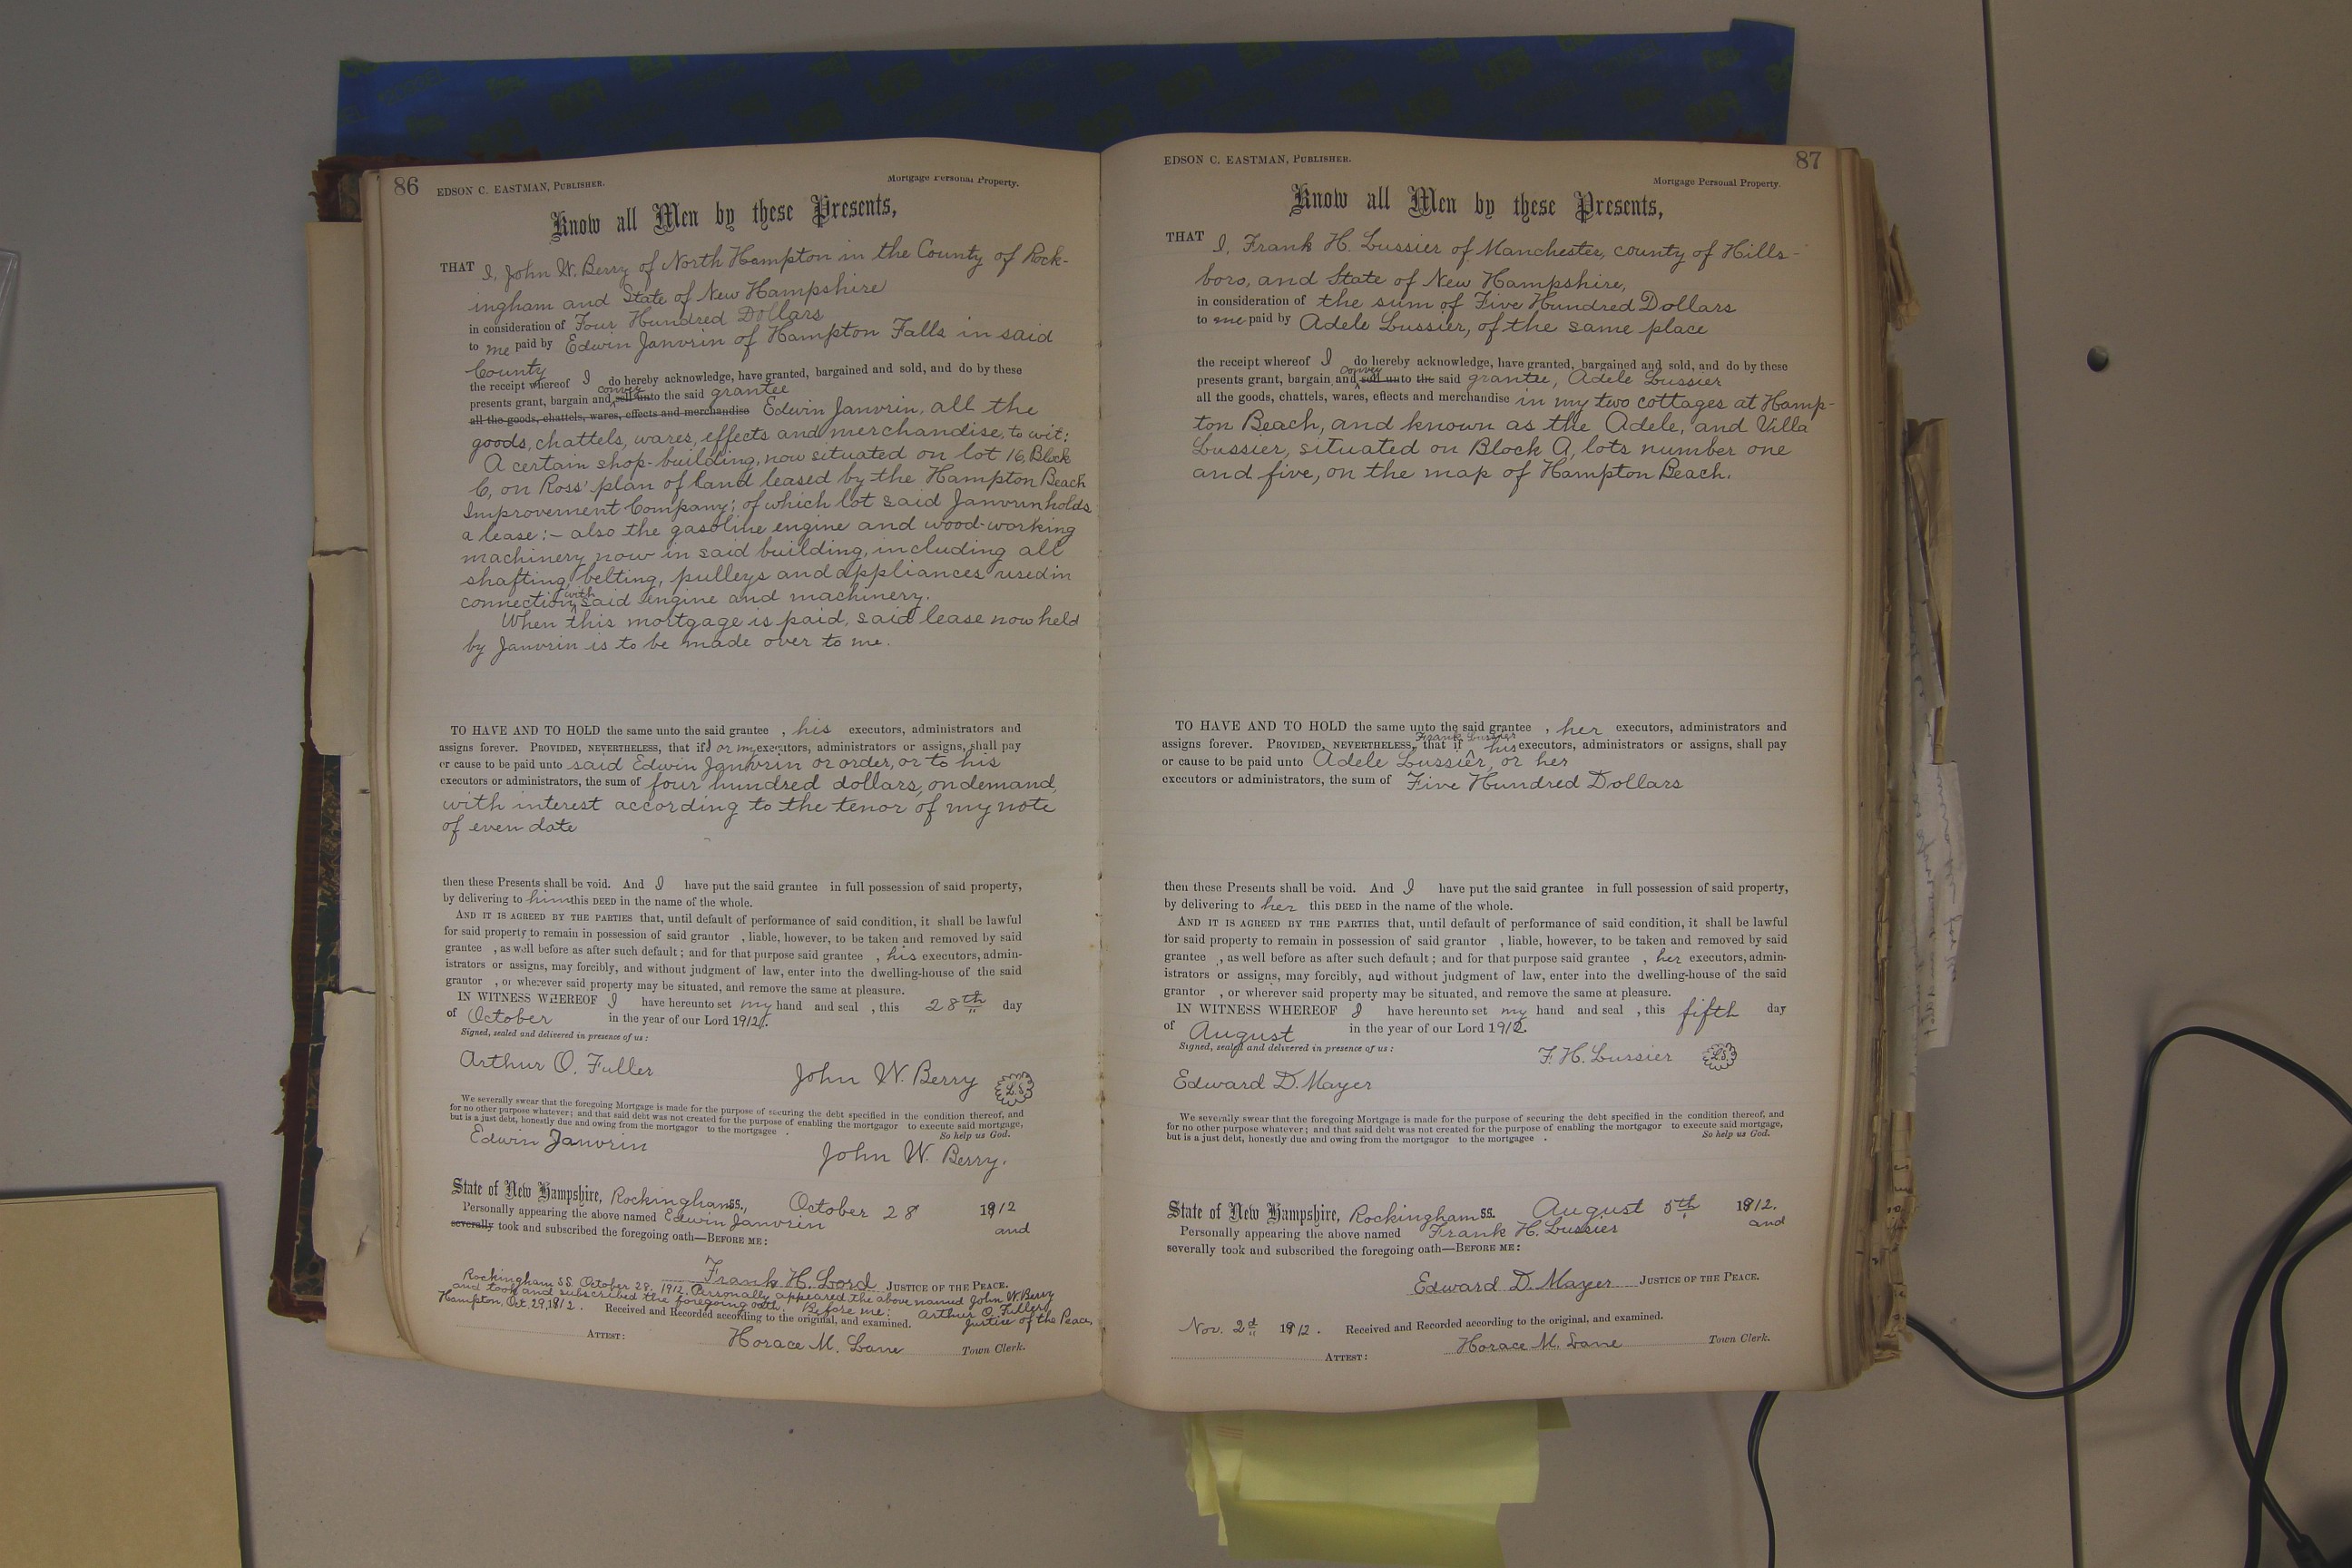 86
EDSON C. EASTMAN, PUBLISHER.
Mortgage Personal Property.
Know all Men by these Presents,
THAT I, John W. Berry of North Hampton in the County of Rock-
ingham and State of New Hampshire
in consideration of Four Hundred Dollars
to me paid by Edwin Janvrin of Hampton Falls in said
County
the receipt whereof I do hereby acknowledge, have granted, bargained and sold, and do by these
convey
presents grant, bargain and sell unto the said grantee
all the goods, chattels, wares, effects and merchandise Edwin Janvrin, all the
goods, chattels, wares, effects and merchandise, to wit:
A certain shop-building, now situated on lot 16, Block
C, on Ross' plan of land leased by the Hampton Beach
Improvement Company; of which lot said Janvrin holds
a lease:- also the gasoline engine and wood-working
machinery now in said building, including all
shafting, belting, pulleys and appliances used in
connection with said engine and machinery.
When this mortgage is paid, said lease now held
by Janvrin is to be made over to me.
TO HAVE AND TO HOLD the same unto the said grantee , his executors, administrators and
assigns forever. PROVIDED, NEVERTHELESS, that if I or my executors, administrators or assigns, shall pay
or cause to be paid unto said Edwin Janvrin or order, or to his
executors or administrators, the sum of four hundred dollars, on demand,
with interest according to the tenor of my note
of even date
then these Presents shall be void. And I have put the said grantee in full possession of said property,
by delivering to him this DEED in the name of the whole.
AND IT IS AGREED BY THE PARTIES that, until default of performance of said condition, it shall be lawful
for said property to remain in possession of said grantor , liable, however, to be taken and removed by said
grantee , as well before as after such default; and for that purpose said grantee , his executors, admin-
istrators or assigns, may forcibly, and without judgment of law, enter into the dwelling-house of the said
grantor , or wherever said property may be situated, and remove the same at pleasure.
IN WITNESS WHEREOF I have hereunto set my hand and seal , this 28th day
of October in the year of our Lord 1912.
Signed, sealed and delivered in presence of us:
Arthur O. Fuller
John W. Berry L.S.
We severally swear that the foregoing Mortgage is made for the purpose of securing the debt specified in the condition thereof, and
for no other purpose whatever; and that said debt was not created for the purpose of enabling the mortgagor to execute said mortgage,
but is a just debt, honestly due and owing from the mortgagor to the mortgagee .
So help us God.
Edwin Janvrin
John W. Berry.
State of New Hampshire, Rockingham SS., October 28 1912
Personally appearing the above named Edwin Janvrin and
severally took and subscribed the foregoing oath—BEFORE ME:
Frank H. Lord JUSTICE OF THE PEACE.
Rockingham SS. October 28, 1912. Personally appeared the above named John W. Berry
and took and subscribed the foregoing oath. Before me: Arthur O. Fuller
Justice of the Peace,
Hampton, Oct. 29, 1912. Received and Recorded according to the original, and examined.
ATTEST: Horace M. Lane Town Clerk.
EDSON C. EASTMAN, PUBLISHER.
87
Mortgage Personal Property.
Know all Men by these Presents,
THAT I, Frank H. Lussier of Manchester, county of Hills-
boro, and State of New Hampshire,
in consideration of the sum of Five Hundred Dollars
to me paid by Adele Lussier, of the same place
the receipt whereof I do hereby acknowledge, have granted, bargained and sold, and do by these
convey
presents grant, bargain and sell unto the said grantee, Adele Lussier
all the goods, chattels, wares, effects and merchandise in my two cottages at Hamp-
ton Beach, and known as the Adele, and Villa
Lussier, situated on Block A, lots number one
and five, on the map of Hampton Beach.
TO HAVE AND TO HOLD the same unto the said grantee , her executors, administrators and
Frank Lussier
assigns forever. PROVIDED, NEVERTHELESS, that if his executors, administrators or assigns, shall pay
or cause to be paid unto Adele Lussier, or her
executors or administrators, the sum of Five Hundred Dollars
then these Presents shall be void. And I have put the said grantee in full possession of said property,
by delivering to her this DEED in the name of the whole.
AND IT IS AGREED BY THE PARTIES that, until default of performance of said condition, it shall be lawful
for said property to remain in possession of said grantor , liable, however, to be taken and removed by said
grantee , as well before as after such default; and for that purpose said grantee , her executors, admin-
istrators or assigns, may forcibly, and without judgment of law, enter into the dwelling-house of the said
grantor , or wherever said property may be situated, and remove the same at pleasure.
IN WITNESS WHEREOF I have hereunto set my hand and seal , this fifth day
of August in the year of our Lord 1912.
Signed, sealed and delivered in presence of us:
F. H. Lussier L.S.
Edward D. Mayer
We severally swear that the foregoing Mortgage is made for the purpose of securing the debt specified in the condition thereof, and
for no other purpose whatever; and that said debt was not created for the purpose of enabling the mortgagor to execute said mortgage,
but is a just debt, honestly due and owing from the mortgagor to the mortgagee .
So help us God.
State of New Hampshire, Rockingham SS. August 5th 1912.
Personally appearing the above named Frank H. Lussier and
severally took and subscribed the foregoing oath—BEFORE ME:
Edward D. Mayer JUSTICE OF THE PEACE.
Nov. 2d 1912. Received and Recorded according to the original, and examined.
ATTEST: Horace M. Lane Town Clerk.